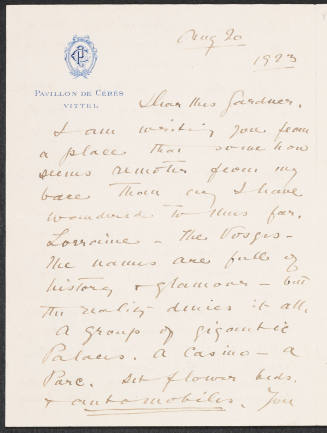 Aug 20
1923
PAVILLON DE CÉRÈS
VITTEL
Dear Mrs Gardner.
I am writing you from
a place that somehow
seems remoter from my
base than any I have
wandered to thus far.
Lorraine – the Vosges –
the names are full of
history & glamour – but
the reality denies it all.
A group of gigantic
Palaces. A casino – a
Parc. set flower beds.
& automobiles. You